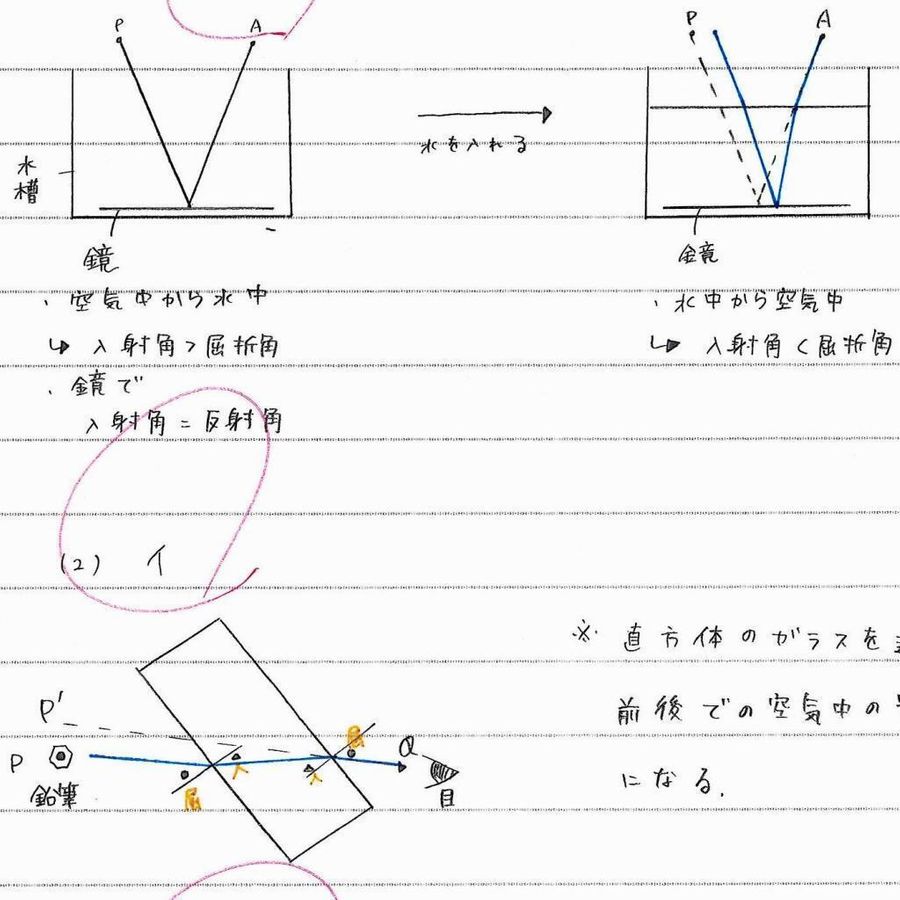 P A
水槽
鏡
水を入れる
P A
鏡
・空気中から水中
↳ 入射角＞屈折角
・鏡で
入射角＝反射角
・水中から空気中
↳ 入射角＜屈折角
(2) イ
※ 直方体のガラスを
前後での空気中の
になる.
P'
P
鉛筆
屈 入 入 屈
Q
目